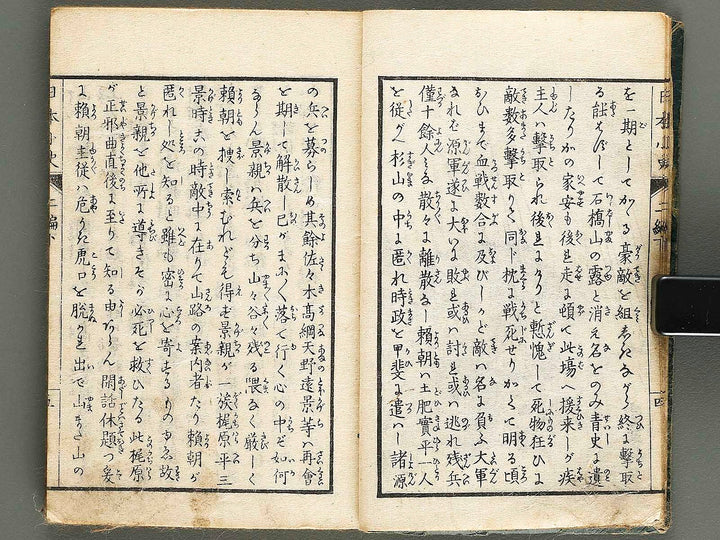 を一期としてかゝる豪敵を組しきながら終に撃取
る能はずして石橋山の露と消え名をのみ青史に遺
したりかの家安も後れ走に頓て此場へ援来しが疾
主人は撃取られ後れまけりと慙愧して死物狂ひに
敵数多撃取りて同じ枕に戦死せりかくて明る頃
おひまで血戦数合に及びしかど敵は名に負ふ大軍
なれば源軍遂に大いに敗れ或は討れ或は逃れ残兵
僅十餘人となり散々に離散なし頼朝は土肥實平一人
を従がへ杉山の中に匿れ時政を甲斐に遣はし諸源
の兵を募らしめ其餘佐々木高綱天野遠景等は再會
を期して解散し己がまに〳〵落て行く心の中ぞ如何
ならん景親は兵を分ち山々谷々残る隈なく厳しく
頼朝を捜し索むれども得ず景親が一族梶原平三
景時此の時敵中に在りて山路の案内者たり頼朝が
匿れし処を知ると雖も密に心を寄するものゆゑ故
と景親を他所に導きその必死を救ひたる此梶原
が正邪曲直後に至りて知る由あらん閑話休題つ爰
に頼朝主従は危うき虎口を脱かれ出で山また山の
日本小史 二編下
四
五